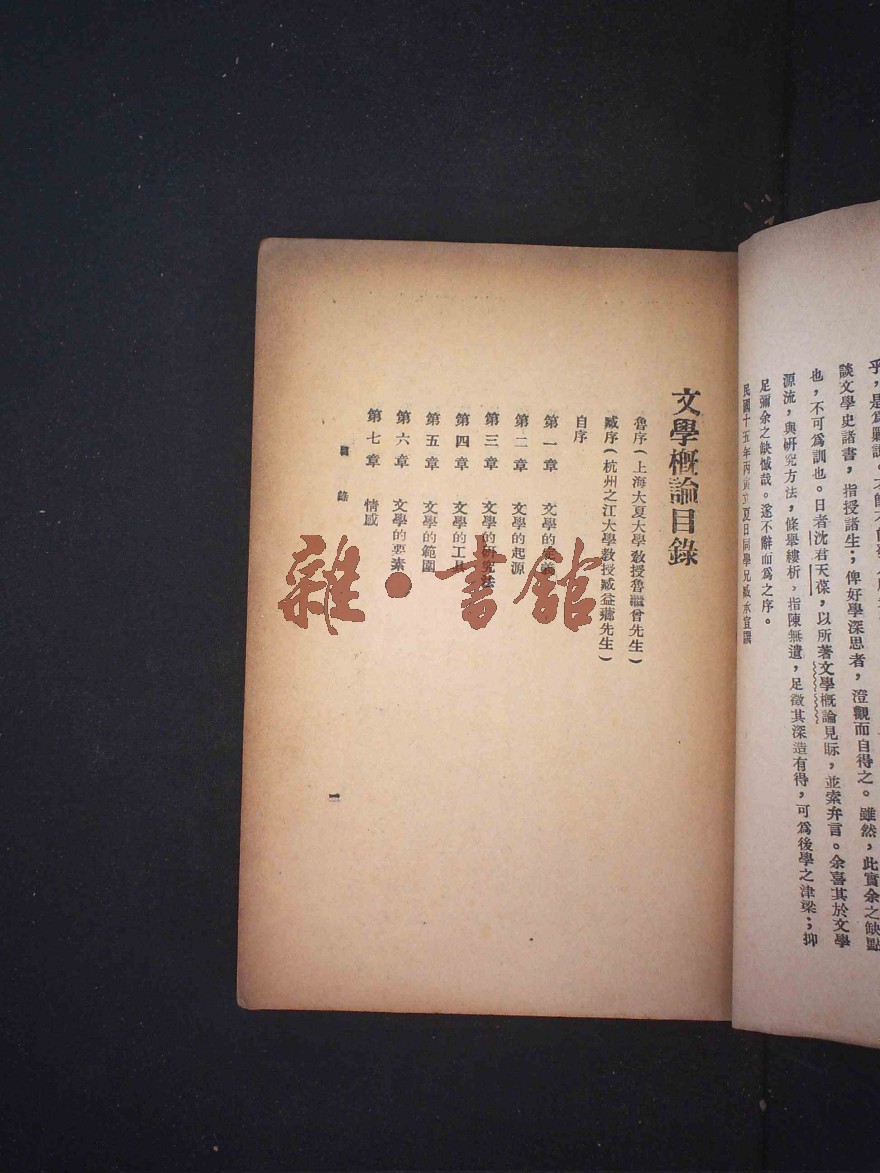 談文學史諸書，指授諸生；俾好學深思者，澄觀而自得之。雖然，此實余之缺點
也，不可爲訓也。日者沈君天葆，以所著文學概論見眎，並索弁言。余喜其於文學
源流，與研究方法，條舉縷析，指陳無遺，足徵其深造有得，可爲後學之津梁；抑
足彌余之缺憾哉。遂不辭而爲之序。
民國十五年丙寅立夏日同學兄臧承宣譔
文學概論目錄
魯序（上海大夏大學教授魯繼曾先生）
臧序（杭州之江大學教授臧益蕭先生）
自序
第一章　文學的定義
第二章　文學的起源
第三章　文學的研究法
第四章　文學的工具
第五章　文學的範圍
第六章　文學的要素
第七章　情感
目錄
一
雜·書館